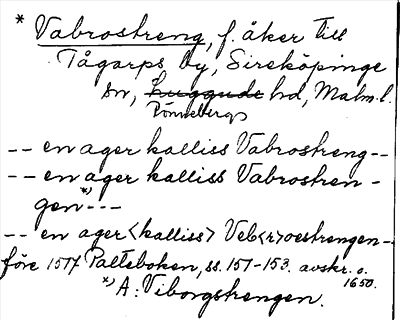 * Vabrostreng, f. åker till
Tågarps by, Sireköpinge
sn, Luggude hd, Malm. l.
Rönnebergs
-- en ager kalliss Vabrostreng --
-- en ager kalliss Vabrostren -
gen *) ---
-- en ager <kalliss> Veb<r>oestrengen --
före 1577 Palteboken, ss. 151-153. avskr. o.
1650.
*) A: Viborgstrengen.